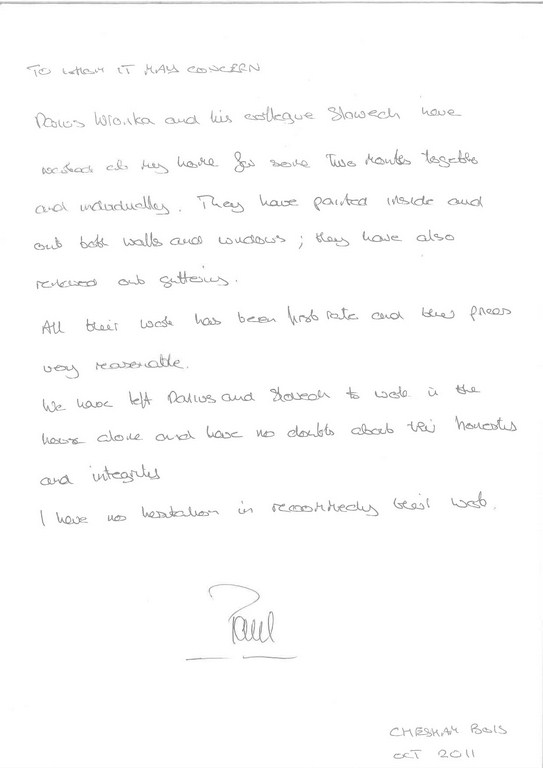 TO WHOM IT MAY CONCERN
Darius Wronka and his collegue Slawech have
worked at my home for some Two Months together
and individually. They have painted inside and
out both walls and windows; they have also
renewed our guttering.
All their work has been first rate and their prices
very reasonable.
We have left Darius and Slawech to work in the
house alone and have no doubts about their honesty
and integrity
I have no hesitation in recommending their work.
Paul
CHESHAM BOIS
OCT 2011